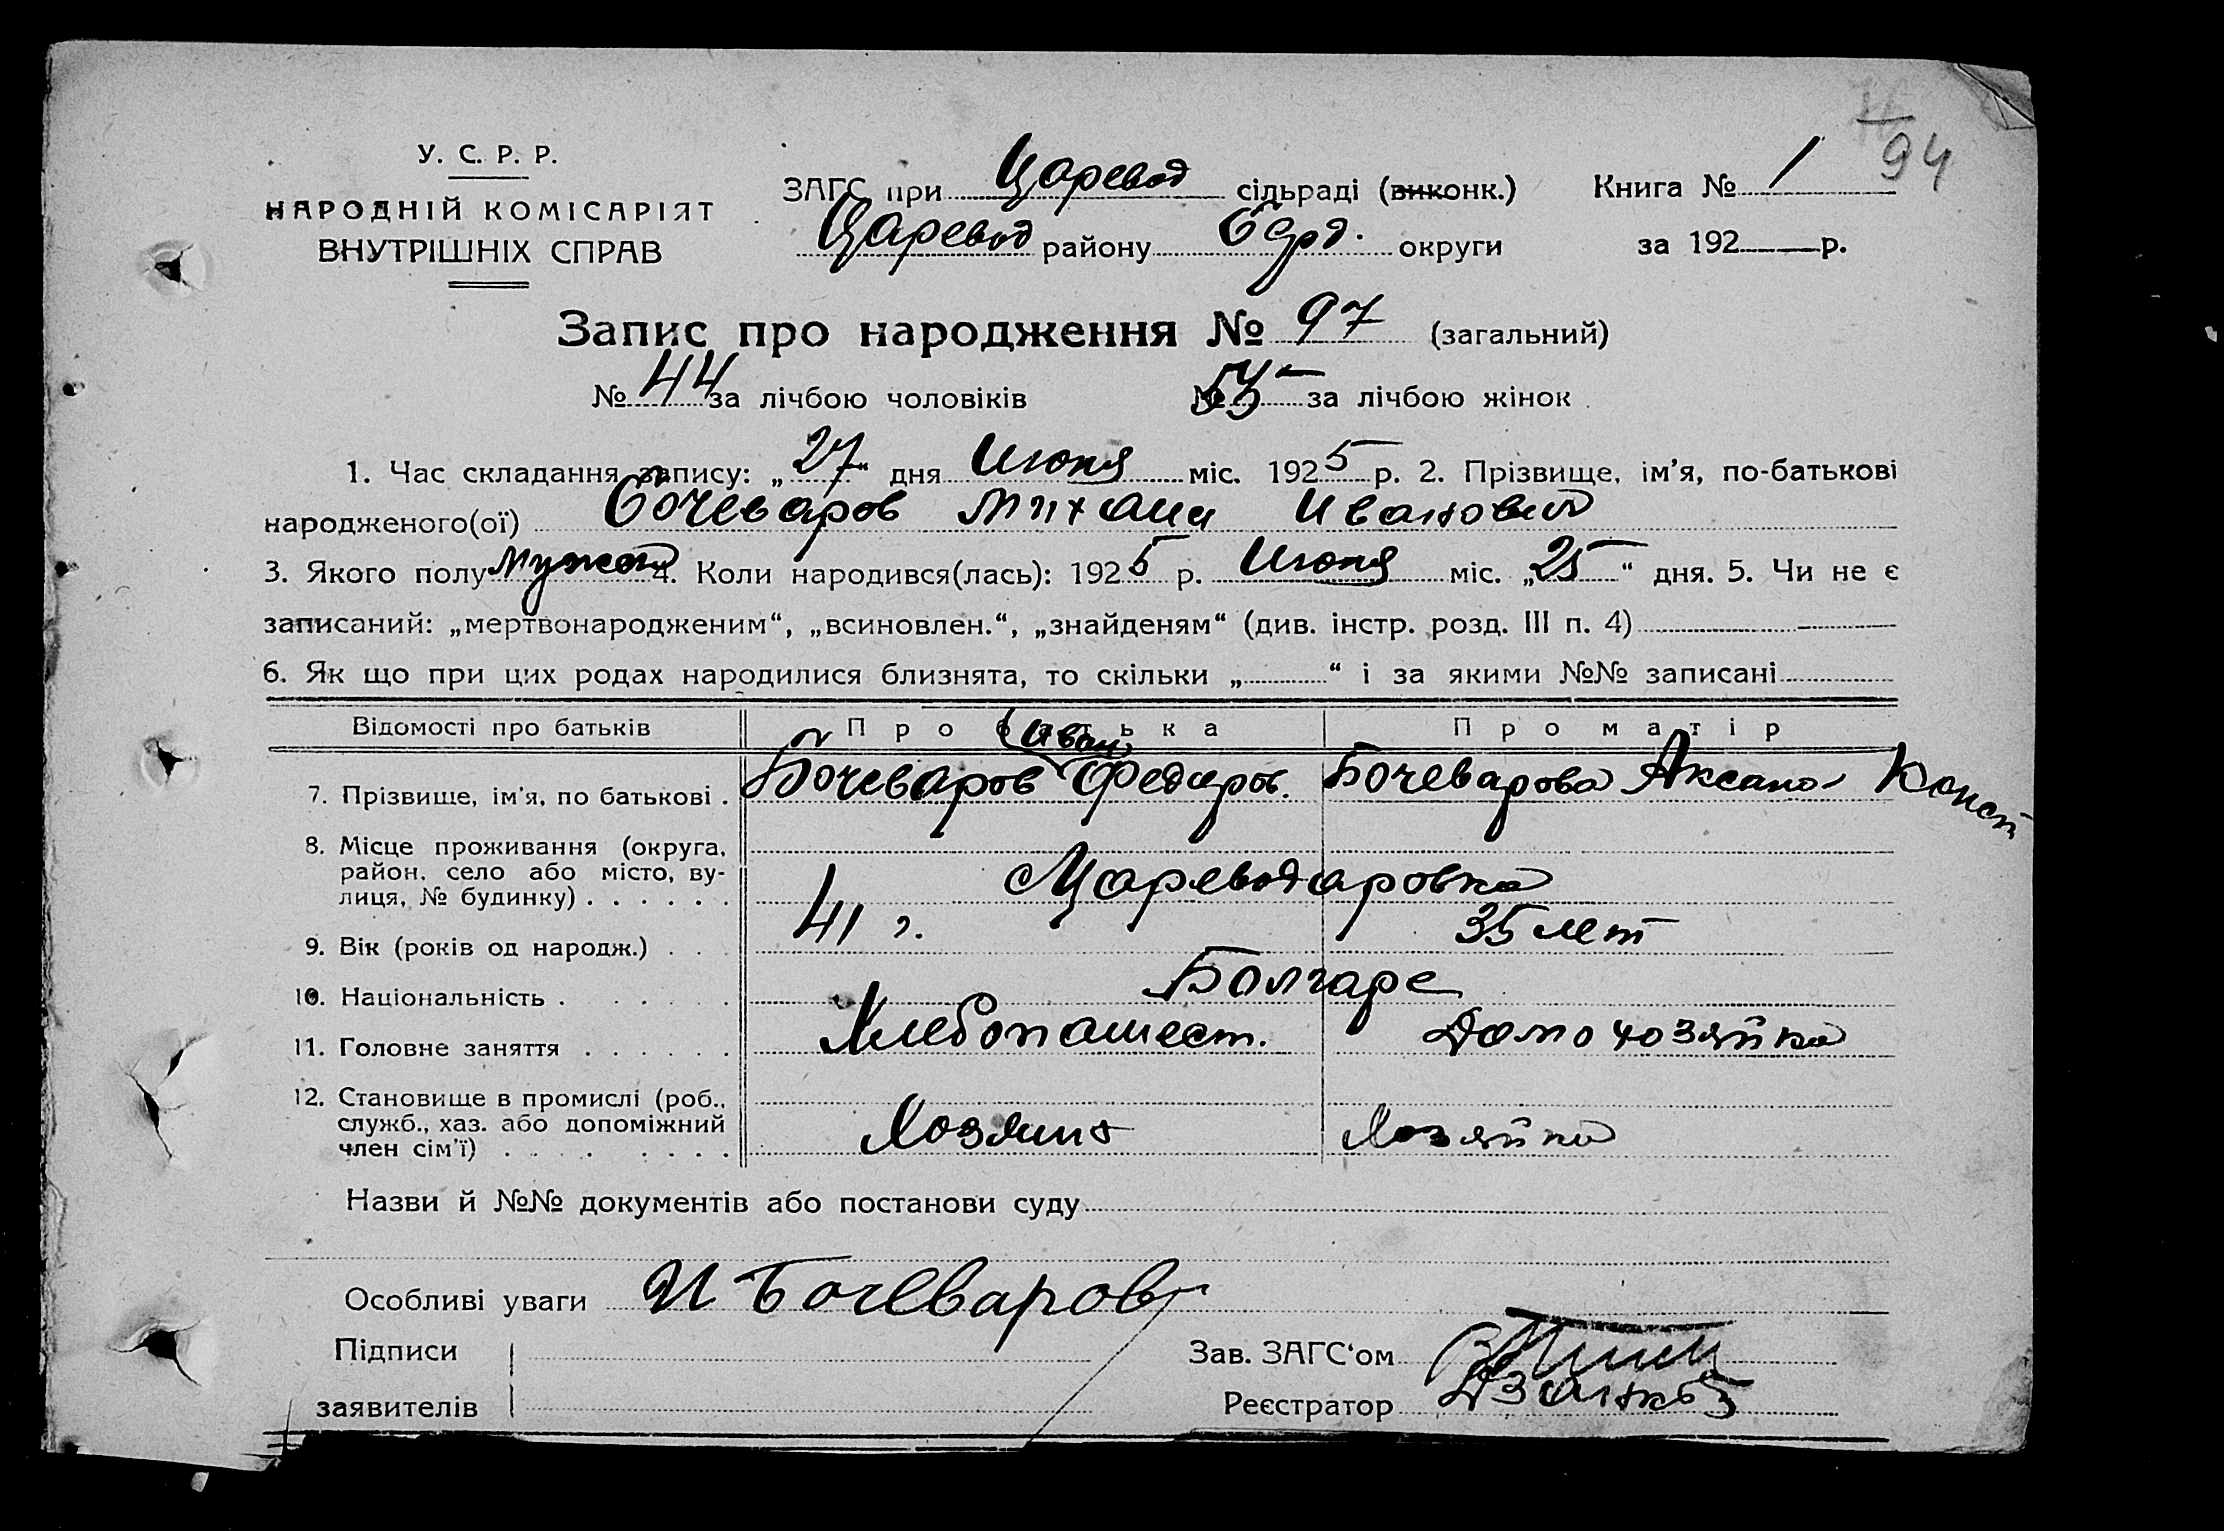 94
У. С. Р. Р.
НАРОДНІЙ КОМІСАРІЯТ
ВНУТРІШНІХ СПРАВ
ЗАГС при Царевод сільраді (виконк.) Книга № 1
Царевод району Берд. округи за 192 р.
Запис про народження № 97 (загальний)
№ 44 за лічбою чоловіків № 53 за лічбою жінок
1. Час складання запису: „27“ дня Июня міс. 1925 р. 2. Прізвище, ім'я, по-батькові
народженого(ої) Бочеваров Михаил Иванович
3. Якого полу мужской 4. Коли народився(лась): 1925 р. Июня міс. „25“ дня. 5. Чи не є
записаний: „мертвонародженим“, „всиновлен.“, „знайденям“ (див. інстр. розд. III п. 4)
6. Як що при цих родах народилися близнята, то скільки „ “ і за якими №№ записані
Відомості про батьків Про батька Про матір
Иван
7. Прізвище, ім'я, по батькові . Бочеваров Федоров. Бочеварова Аксана Конст
8. Місце проживання (округа,
район, село або місто, ву-
лиця, № будинку) . . . . . . Цареводаровка
9. Вік (років од народж.) . . . 41 г. 35 лет
10. Національність . . . . . . Болгаре
11. Головне заняття . . . . . . Хлебопашест. Домохозяйка
12. Становище в промислі (роб.,
служб., хаз. або допоміжний
член сім'ї) . . . . . . . . Хозяин Хозяйка
Назви й №№ документів або постанови суду
Особливі уваги И Бочеваров
Підписи Зав. ЗАГС‘ом
заявителів Реєстратор